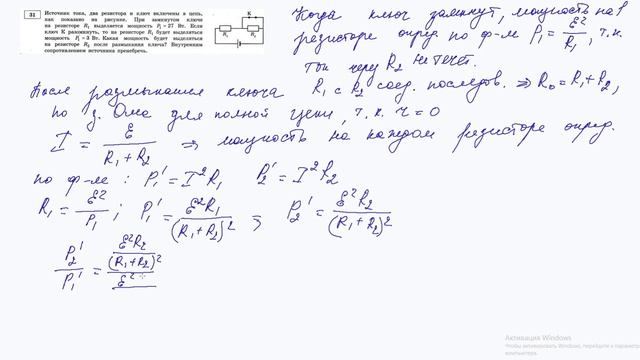 31
Источник тока, два резистора и ключ включены в цепь,
как показано на рисунке. При замкнутом ключе
на резисторе R₁ выделяется мощность P₁ = 27 Вт. Если
ключ К разомкнуть, то на резисторе R₁ будет выделяться
мощность P₁' = 3 Вт. Какая мощность будет выделяться
на резисторе R₂ после размыкания ключа? Внутренним
сопротивлением источника пренебречь.
K
R₁
R₂
Когда ключ замкнут, мощность на 1
резисторе опред. по ф-ле P₁ = ℰ²/R₁, т.к.
ток через R₂ не течет.
После размыкания ключа R₁ с R₂ соед. последов. ⇒ R₀ = R₁ + R₂,
по з. Ома для полной цепи, т.к. r = 0
I = ℰ/(R₁ + R₂) ⇒ мощность на каждом резисторе опред.
по ф-ле: P₁' = I²R₁ P₂' = I²R₂
R₁ = ℰ²/P₁; P₁' = ℰ²R₁/(R₁ + R₂)²; P₂' = ℰ²R₂/(R₁ + R₂)²
P₂'/P₁' = ℰ²R₂/(R₁ + R₂)² / ℰ²
Активация Windows
Чтобы активировать Windows, перейдите к параметрам
компьютера.